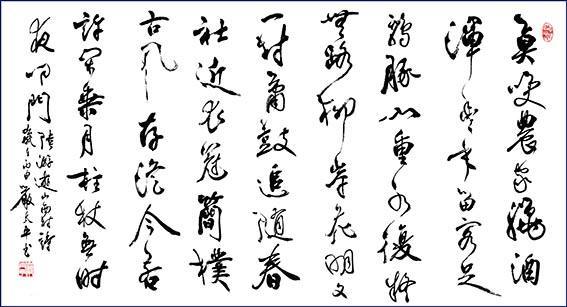 莫笑農家臘酒
渾豐年留客足
鷄豚山重水復疑
無路柳岸花明又
一村簫鼓追隨春
社近衣冠簡樸
古風存從今若
許閑乘月拄杖無時
夜叩門
陸游遊山西村詩